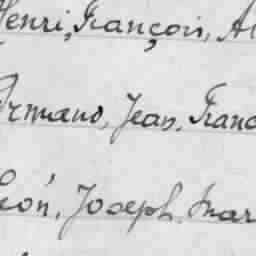 Henri, François, Al
Armand, Jean, Franc
Léon, Joseph, Mar